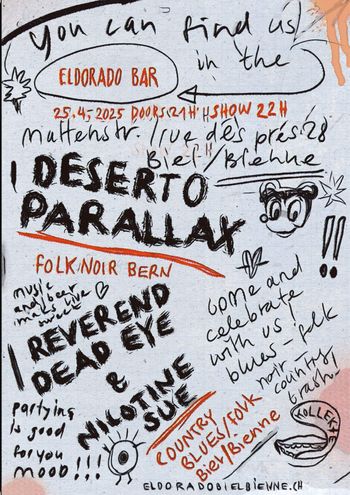 you can find us
in the
ELDORADO BAR
25.4.2025 DOORS 21H SHOW 22H
Mattenstr. / rue des prés 28
Biel/Bienne
DESERTO
PARALLAX
FOLK NOIR BERN
music
and beer
makes live
sweet
REVEREND
DEAD EYE
&
NICOTINE
SUE
COUNTRY
BLUES/FOLK
Biel/Bienne
come and
celebrate
with us!
blues-folk
noir-country
trash!
!!
partying
is good
for you
mood!!!
KOLLEKTE
ELDORADOBIELBIENNE.CH